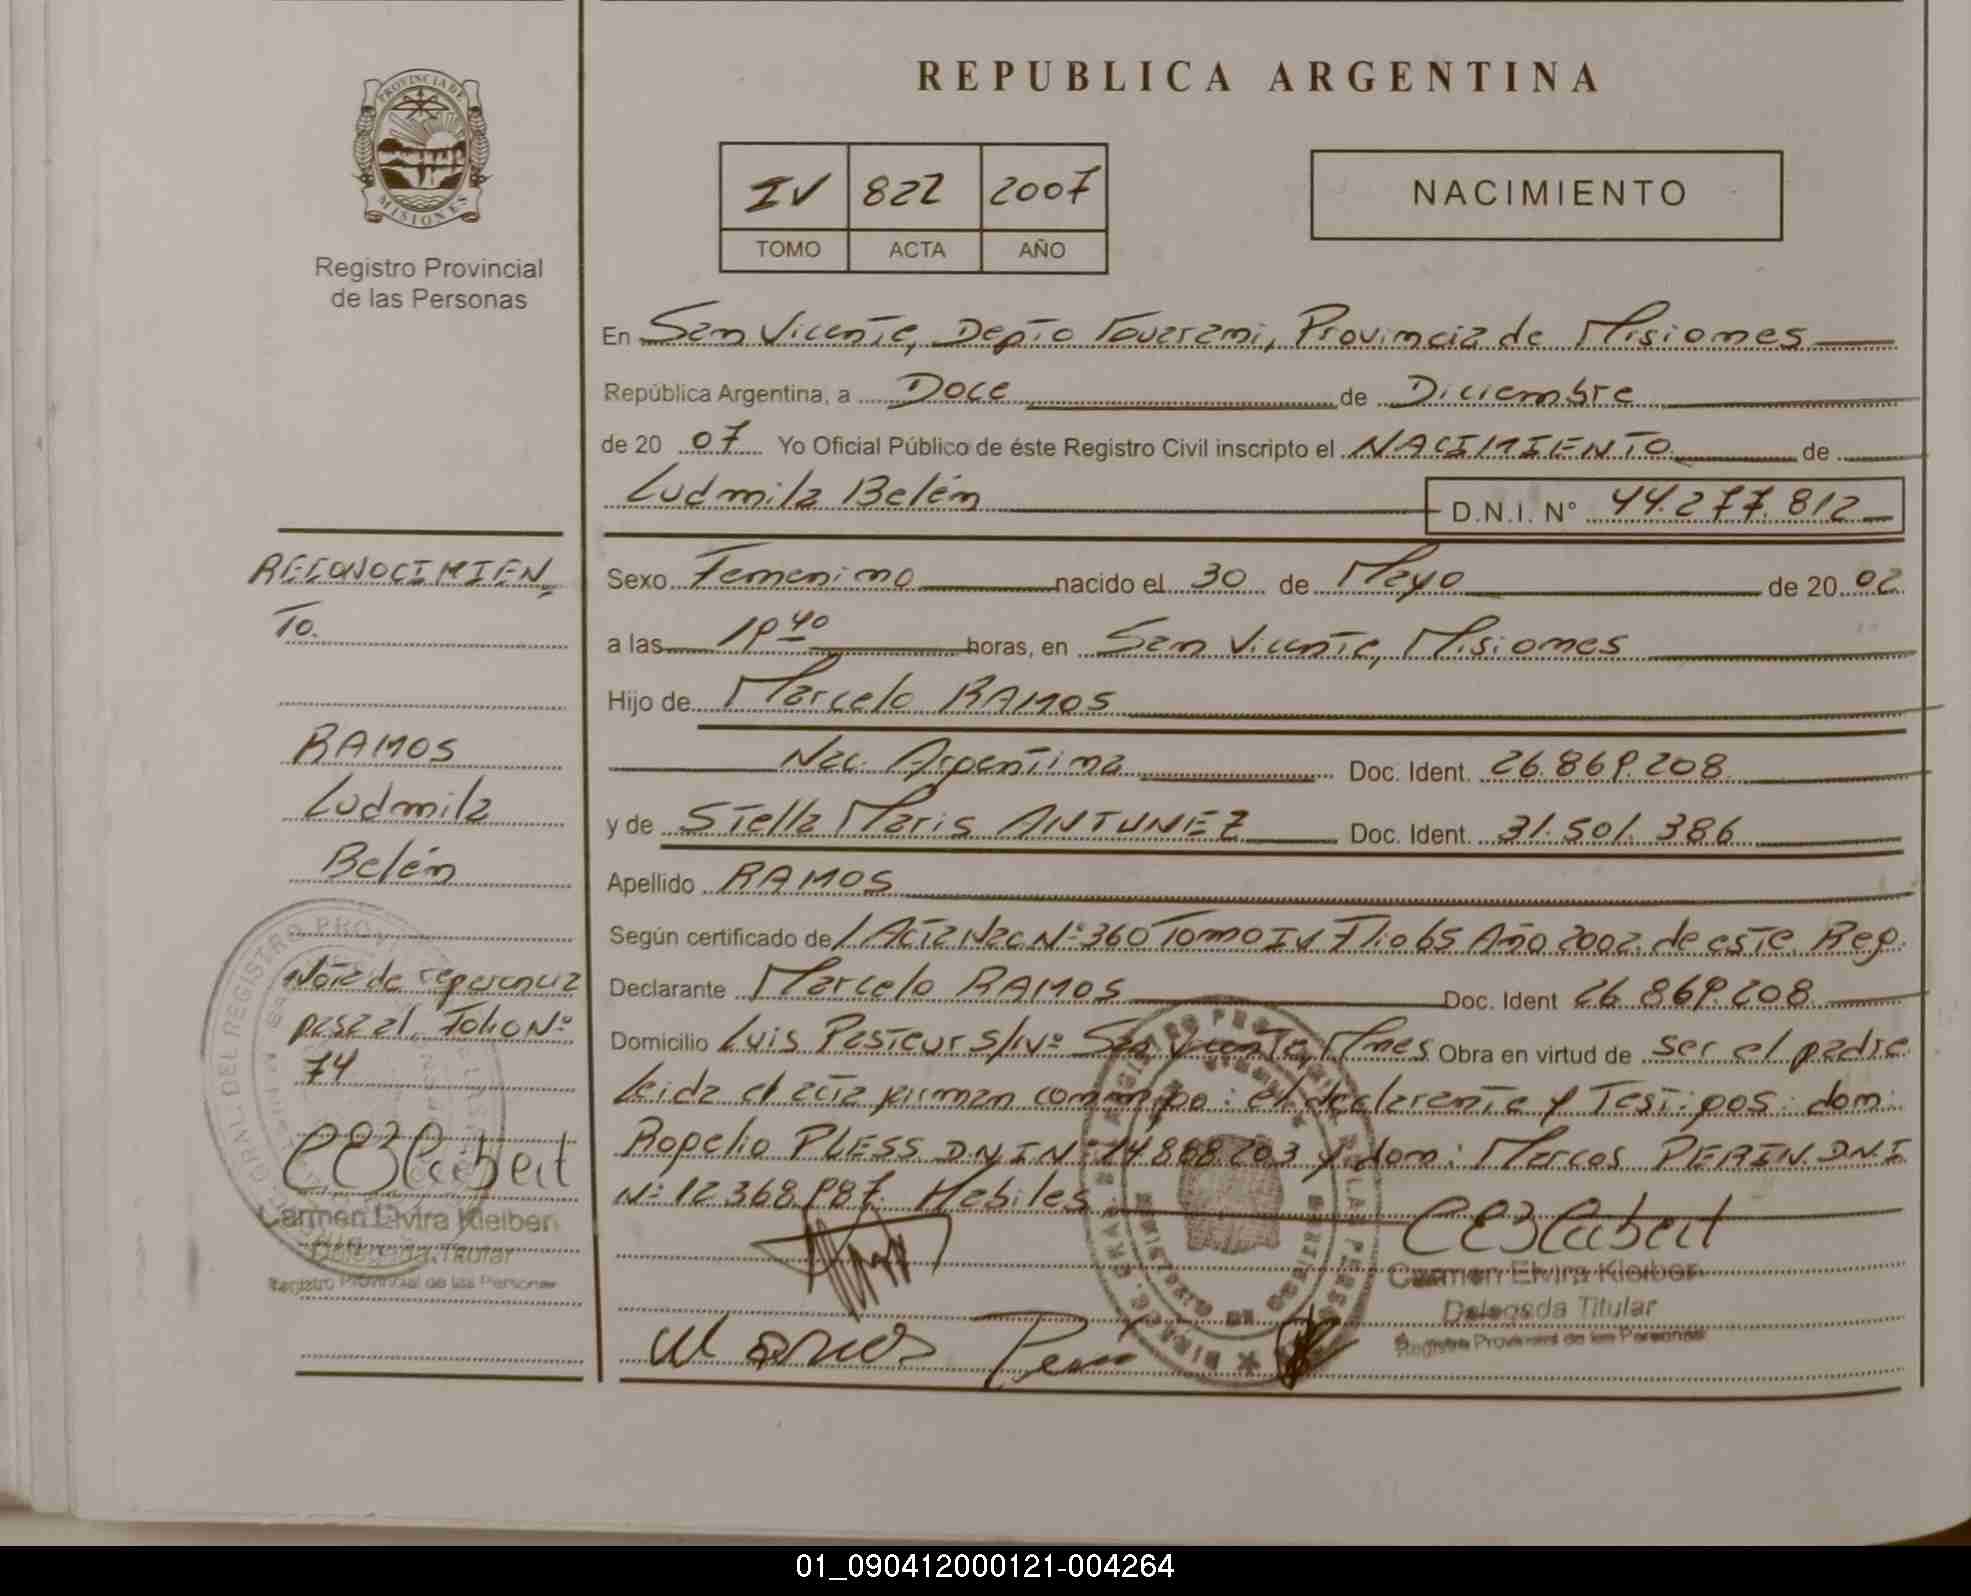 REPUBLICA ARGENTINA
PROVINCIA DE
MISIONES
Registro Provincial
de las Personas
IV 822 2007
TOMO ACTA AÑO
NACIMIENTO
En San Vicente, Depto Guarani, Provincia de Misiones
República Argentina, a Doce de Diciembre
de 20 07 Yo Oficial Público de éste Registro Civil inscripto el NACIMIENTO de
Ludmila Belén D.N.I. N° 44.277.812
Sexo Femenino nacido el 30 de Mayo de 20 02
a las 19 40 horas, en San Vicente, Misiones
Hijo de Marcelo RAMOS
Nac. Argentina Doc. Ident. 26.869.208
y de Stella Maris ANTUNEZ Doc. Ident. 31.501.386
Apellido RAMOS
Según certificado de Acta Nac N° 360 Tomo IV Flio 65 Año 2002 de este Reg.
Declarante Marcelo RAMOS Doc. Ident 26.869.208
Domicilio Luis Pasteur s/N° San Vicente, Mnes Obra en virtud de ser el padre
Leida el acta firman conmigo: el declarante y Testigos: don:
Rogelio PLESS DNI N° 14.888.203 y don: Marcos PERIN DNI
N° 12.368.987. Habiles
Carmen Elvira Kleiber
Delegada Titular
Registro Provincial de las Personas
Marcos
RECONOCIMIEN
TO.
RAMOS
Ludmila
Belén
Nota de referencia
pasa al Folio N°
74
Carmen Elvira Kleiber
Delegada Titular
Registro Provincial de las Personas
01_090412000121-004264